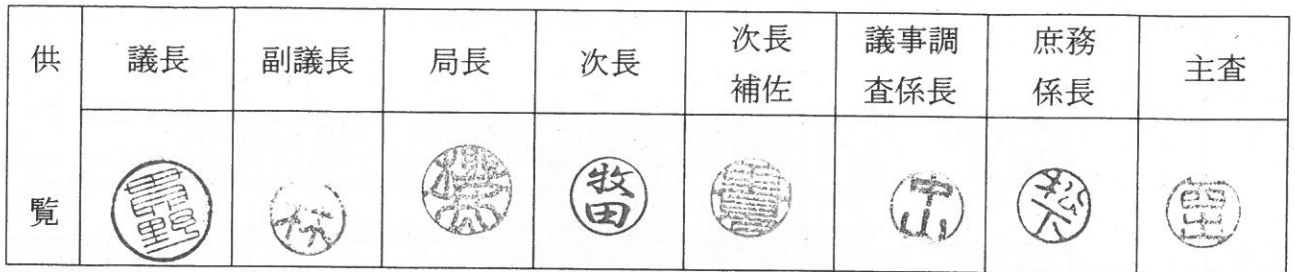 供覧
議長
副議長
局長
次長
次長
補佐
議事調
査係長
庶務
係長
主査
牧田
中山